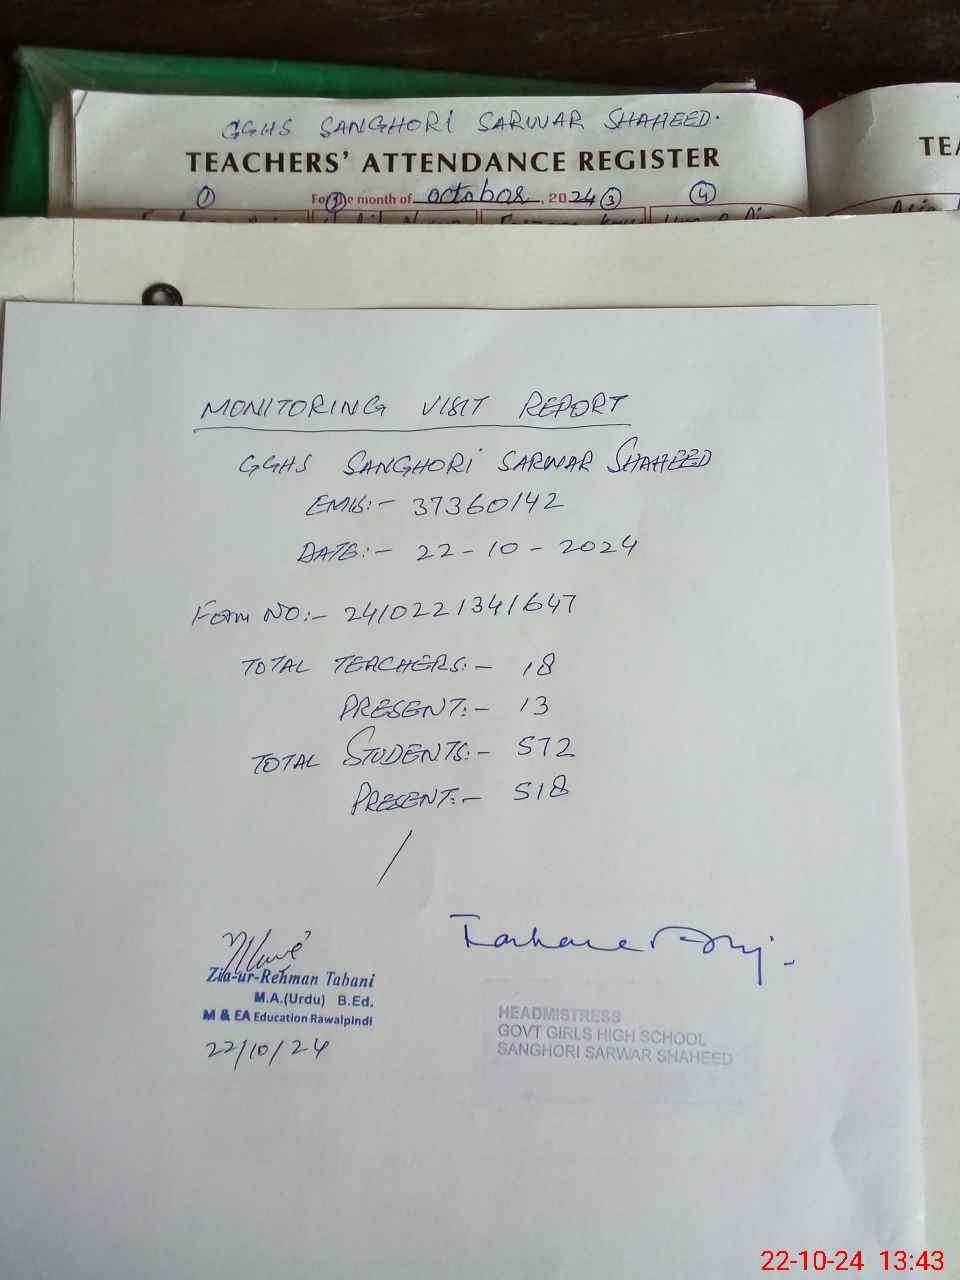 GGHS SANGHORI SARWAR SHAHEED.
TEACHERS' ATTENDANCE REGISTER
TEA
For the month of octobar, 2024
① ② ③ ④
MONITORING VISIT REPORT
GGHS SANGHORI SARWAR SHAHEED
EMIS:- 37360142
DATE:- 22-10-2024
Form NO:- 2410221341647
TOTAL TEACHERS:- 18
PRESENT:- 13
TOTAL STUDENTS:- 572
PRESENT:- 518
Zia-ur-Rehman Tabani
M.A.(Urdu) B.Ed.
M & EA Education Rawalpindi
22/10/24
HEADMISTRESS
GOVT GIRLS HIGH SCHOOL
SANGHORI SARWAR SHAHEED
22-10-24 13:43